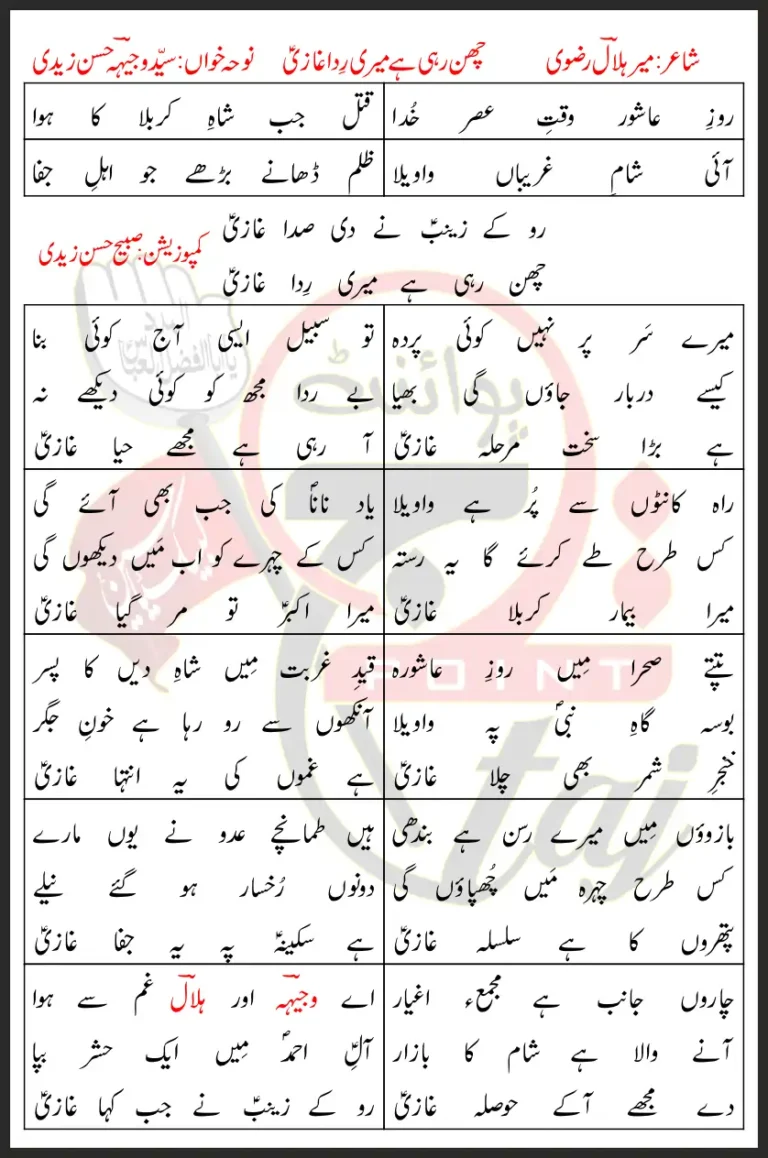 شاعر: میر ہلالؔ رضوی چھن رہی ہے میری رِدا غازیؑ نوحہ خواں: سیّد وجیہہؔ حسن زیدی
روزِ عاشور وقتِ عصر خُدا
قتل جب شاہِ کربلا کا ہوا
آئی شامِ غریباں واویلا
ظلم ڈھانے بڑھے جو اہلِ جفا
رو کے زینبؑ نے دی صدا غازیؑ
چھن رہی ہے میری رِدا غازیؑ
کمپوزیشن: صبیح حسن زیدی
میرے سَر پر نہیں کوئی پردہ
کیسے دربار جاؤں گی بھیا
ہے بڑا سخت مرحلہ غازیؑ
تو سبیل ایسی آج کوئی بنا
بے ردا مجھ کو کوئی دیکھے نہ
آ رہی ہے مجھے حیا غازیؑ
راہ کانٹوں سے پُر ہے واویلا
کس طرح طے کرئے گا یہ رستہ
میرا بیمار کربلا غازیؑ
یاد ناناؐ کی جب بھی آئے گی
کس کے چہرے کو اب مَیں دیکھوں گی
میرا اکبرؑ تو مر گیا غازیؑ
تپتے صحرا مِیں روزِ عاشورہ
بوسہ گاہِ نبیؐ پہ واویلا
خنجرِ شمر بھی چلا غازیؑ
قیدِ غربت مِیں شاہِ دیں کا پسر
آنکھوں سے رو رہا ہے خونِ جگر
ہے غموں کی یہ انتہا غازیؑ
بازوؤں مِیں میرے رسن ہے بندھی
کس طرح چہرہ مَیں چُھپاؤں گی
پتھروں کا ہے سلسلہ غازیؑ
ہیں طمانچے عدو نے یوں مارے
دونوں رُخسار ہو گئے نیلے
ہے سکینہؑ پہ یہ جفا غازیؑ
چاروں جانب ہے مجمعء اغیار
آنے والا ہے شام کا بازار
دے مجھے آکے حوصلہ غازیؑ
اے وجیہہؔ اور ہلالؔ غم سے ہوا
آلِ احمدؐ مِیں ایک حشر بپا
رو کے زینبؑ نے جب کہا غازیؑ
پوائنٹ
POINT
taj